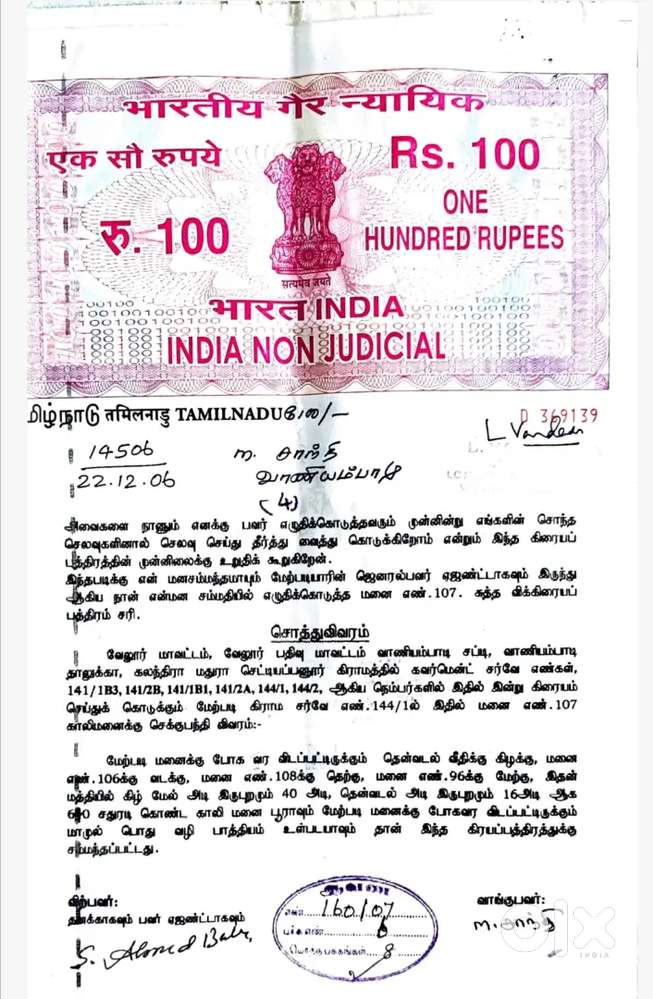 भारतीय गैर न्यायिक
एक सौ रुपये
Rs. 100
रु. 100
ONE
HUNDRED RUPEES
सत्यमेव जयते
भारत INDIA
INDIA NON JUDICIAL
மிழ்நாடு तमिलनाडु TAMILNADU
D 369139
14506
m. சாந்தி
22.12.06
வாணியம்பாடி
(4)
அவைகளை நானும் எனக்கு பவர் எழுதிக்கொடுத்தவரும் முன்னின்று எங்களின் சொந்த
செலவுகளினால் செலவு செய்து தீர்த்து வைத்து கொடுக்கிறோம் என்றும் இந்த கிரையப்
பத்திரத்தின் முன்னிலைக்கு உறுதிக் கூறுகிறேன்.
இந்தபடிக்கு என் மனசம்மத்தமாயும் மேற்படியாரின் ஜெனரல்பவர் ஏஜண்ட்டாகவும் இருந்து
ஆகிய நான் என்மன சம்மதியில் எழுதிக்கொடுத்த மனை எண்.107. சுத்த விக்கிரையப்
பத்திரம் சரி.
சொத்துவிவரம்
வேலூர் மாவட்டம், வேலூர் பதிவு மாவட்டம் வாணியம்பாடி சப்டி, வாணியம்பாடி
தாலுக்கா, கலந்திரா மதுரா செட்டியப்பனூர் கிராமத்தில் கவர்மெண்ட் சர்வே எண்கள்,
141/1B3, 141/2B, 141/1B1, 141/2A, 144/1, 144/2, ஆகிய நெம்பர்களில் இதில் இன்று கிரையம்
செய்துக் கொடுக்கும் மேற்படி கிராம சர்வே எண்.144/1ல் இதில் மனை எண்.107
காலிமனைக்கு செக்குபந்தி விவரம்:-
மேற்படி மனைக்கு போக வர விடப்பட்டிருக்கும் தென்வடல் வீதிக்கு கிழக்கு, மனை
எண்.106க்கு வடக்கு, மனை எண்.108க்கு தெற்கு, மனை எண்.96க்கு மேற்கு, இதன்
மத்தியில் கிழ் மேல் அடி இருபுறமும் 40 அடி, தென்வடல் அடி இருபுறமும் 16அடி ஆக
சதுரடி கொண்ட காலி மனை பூராவும் மேற்படி மனைக்கு போகவர விடப்பட்டிருக்கும்
மாமுல் பொது வழி பாத்தியம் உள்படயாவும் தான் இந்த கிரயப்பத்திரத்துக்கு
சம்மந்தப்பட்டது.
விற்பவர்:
தனக்காகவும் பவர் ஏஜண்டாகவும்
S. Ahmed Babu,
ஆவண
எண் 160/07
பக்க எண் 6
மொத்த பக்கங்கள் 8
வாங்குபவர்:
m. சாந்தி
olx
INDIA